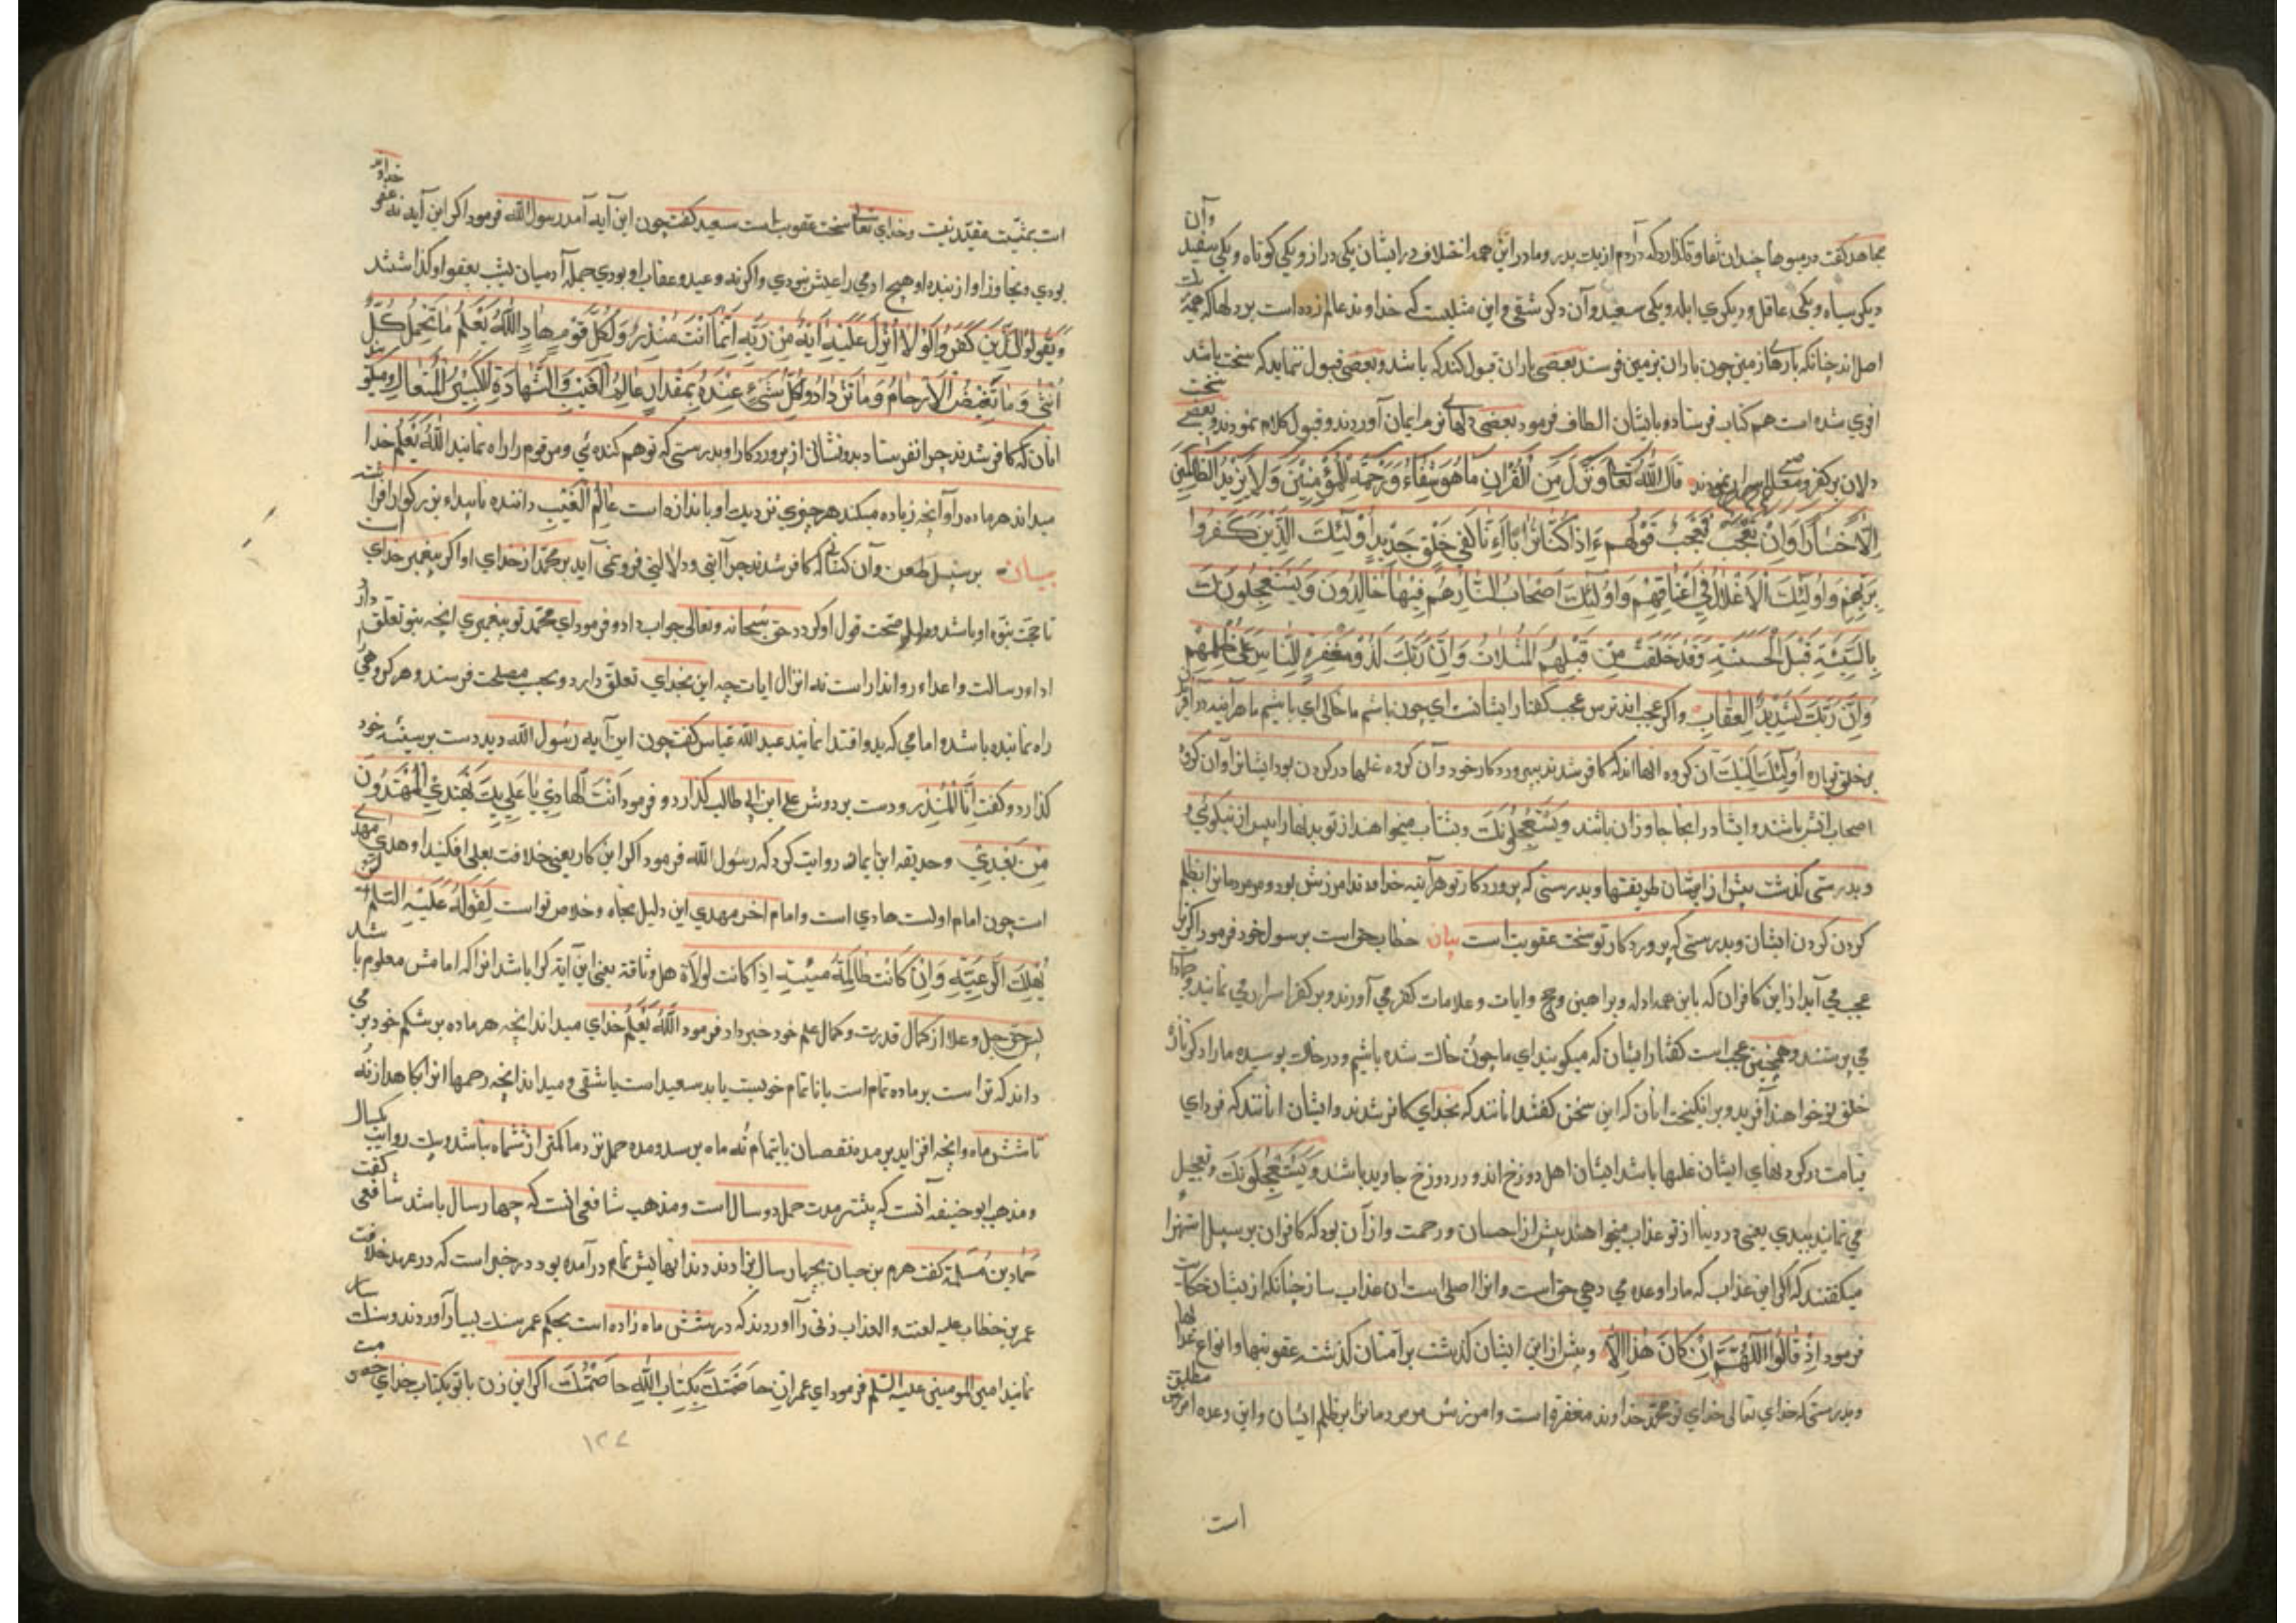 مجاهد کفت در میوها چندان تفاوت کذارد که آدم از یک پدر و مادر این همه اختلاف در ایشان یکی دراز و یکی کوتاه و یکی سفید وآن
دیکری سیاه و یکی عاقل و دیکری ابله و یکی سعید وآن دکر شقی و این مثلیست که خداوند عالم زده است بر دلها که همه
اصل اند چنانکه پارهاء زمین چون باران بزمین فرستد بعضی باران قبول کند که باشد و بعضی قبول ننماید که سخت باشد
افری شده است هم کتاب فرستاده بایشان الطاف فرمود بعضی دلهاء نرم ایمان آوردند و قبول کلام نمودند و بعضی سخت
دلان بر کفر و نمودند قال الله تعالی ونزل من القران ما هو شفاء ورحمة للمؤمنین ولا یزید الظالمین
الا خسارا وان تعجب فعجب قولهم ءاذا کنا ترابا ءانا لفی خلق جدید اولئک الذین کفروا
بربهم واولئک الاغلال فی اعناقهم واولئک اصحاب النار هم فیها خالدون ویستعجلونک
بالسیئة قبل الحسنة وقد خلت من قبلهم المثلات وان ربک لذو مغفرة للناس علی ظلمهم
وان ربک لشدید العقاب واکر عجب اند ترس عجب کفتار ایشانست ای چون باشیم ما خاک ای باشیم ما هر آینه در آفر
بر خلق تو پاره اولئک آن کروه انها اند که کافر شدند بپروردکار خود وآن کروه غلها در کردن بود ایشانرا وآن کروه
اصحاب اتش باشند و ایشان در انجا جاوزان باشند ویستعجلونک و بشتاب میخواهند از تو بدیها را پیس از نیکوئی و
و بدرستی کذشت پیش از ایشان طریقتها و بدرستی که پروردکار تو هر آینه خداوند امرزش بود و مر مردمانرا بظلم
کردن کردن ایشان و بدرستی که پروردکار تو سخت عقوبت است بیان خطاب حق است بر سول خود فرمود اکر تو
عجب می آید از این کافران که با این همه ادله و براهین و حجج و ایات و علامات کفر می آورند و بر کفر اسرار می نمایند و
می پرستند و همچنین عجب است کفتار ایشان که میکویند ای ما چون خاک شده باشیم و در خاک پوسیده مارا دکر تازه
خلق نو خواهند آفرید و بر انکیخت انان که این سخن کفتند انانند که بخدای کافر شدند و ایشان انانند که فردای
قیامت در کردنهای ایشان غلها باشد ایشان اهل دوزخ اند و در دوزخ جاوید باشند ویستعجلونک و تعجیل
می نمایند ببدی یعنی در دنیا از تو عذاب میخواهند پیش از احسان و رحمت و از آن بود که کافران بر سبیل استهزا
میکفتند که اکر این عذاب که مارا وعده می دهی حق است و انرا اصلی است ان عذاب بساز چنانکه از یشان حکایت
فرمود اذ قالوا اللهم ان کان هذا الایه و پیش از این ایشان کذشت بر آمتان کذشته عقوبتها و انواع عذابها
و بدرستی که خدای تعالی خدای تو محمد خداوند مغفرة است و امرزش مر مردمانرا بر ظلم ایشان و این وعده امرزش مطلق
است
ات بمثیّت مقیّد نیست و خدای تعالی سخت عقوبت است سعید کفت چون این آیه آمد رسول الله فرمود اکر این آید نه عفو خداوند
بودی و تجاوز او از بنده او هیچ ادمی را عیش نبودی و اکر نه وعید و عقاب او بودی جمله آدمیان پشت بعفو او کذاشتند
ویقول الذین کفروا لولا انزل علیه آیة من ربه انما انت منذر ولکل قوم هاد الله یعلم ما تحمل کل
انثی وما تغیض الارحام وما تزداد وکل شیء عنده بمقدار عالم الغیب والشهادة الکبیر المتعال و میکویند
انان که کافر شدند چرا نفرستاد بدو نشانی از پروردکار او بدرستی که تو هم کننده ئی و مر قوم را راه نمایند الله یعلم خدا
میداند هر ماده را و آنچه زیاده میکند هر چیزی نزدیک او باندازه است عالم الغیب داننده ناپیداء بزرکوار افراشته
بیان بر سبیل طعن وآن کسانی که کافر شدند چرا آیتی و دلالتی فرو نمی آید بر محمد از خدای او اکر پیغمبر خدای است
تا حجت نبوة او باشد و دلیل صحت قول او کردد حق سبحانه وتعالی جواب داد و فرمود ای محمد تو پیغمبری انچه بتو تعلق دارد
اداء رسالت و اعداء روانداراست نه انزال ایات چه این بخدای تعلق دارد و بحسب مصلحت فرستد و هر کروهی
راه نماینده باشد و امامی که بدو اقتدا نمایند عبد الله عباس کفت چون این آیه رسول الله دید دست بر سینه خود
کذارد و کفت انا المنذر و دست بر دوش علی ابن ابی طالب کذارد و فرمود انت الهادی یا علی بک یهتدی المهتدون
من بعدی و حدیقه ابن یمان روایت کرد که رسول الله فرمود اکر این کار یعنی خلافت بعلی افکنید او هدی مهدی
است چون امام اولست هادی است و امام اخر مهدی این دلیل نجاة و خلاص تو است لقوله علیه السلم لن
یهلک الرعیة وان کانت ظالمة مسیئة اذا کانت لولاة هل وثاقة یعنی این آیة کرا باشد انرا که امامش معلوم باشد
پس حق جل و علا از کمال قدرت و کمال علم خود خبر داد فرمود الله یعلم خدای میداند انچه هر ماده بر شکم خود بر می
داند که تر است بر ماده تمام است یا ناتمام خوبست یا بد سعید است یا شقی و میداند انچه رحمها انرا بکاهد از نه
تا شش ماه و انچه افزاید بر مده نقصان یا بتمام نه ماه برسد و مده حمل نزد ما کمتر از ششماه نباشد و بیک روایت یکسال
و مذهب ابو حنیفه آنست که بیشتر مدت حمل دو سال است و مذهب شافعی انست که چهار سال باشد شافعی کفت
حماد بن مسلمة کفت هرم بن حیان بچهار سال بزادند دندانهایش تمام در آمده بود در خبر است که در عهد خلافت
عمر بن خطاب علیه لعنت و العذاب زنی را آوردند که در شش ماه زاده است بحکم عمر سنک بسیار آوردند و سنک سار
نمایند امیر المومنین علیه السلم فرمود ای عمر ان خاصمتک بکتاب الله خاصمتک اکر این زن با تو بکتاب خدای خصومت
۱۲۷